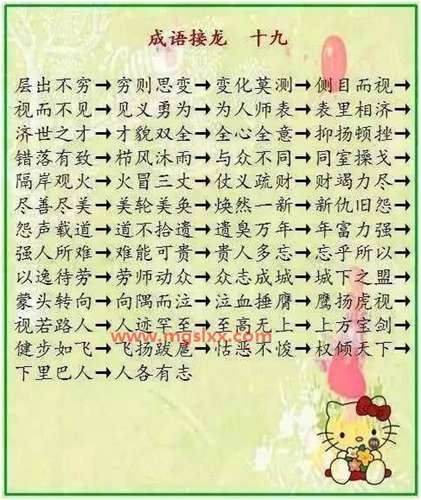 成语接龙 十九
层出不穷→穷则思变→变化莫测→侧目而视→
视而不见→见义勇为→为人师表→表里相济→
济世之才→才貌双全→全心全意→抑扬顿挫→
错落有致→栉风沐雨→与众不同→同室操戈→
隔岸观火→火冒三丈→仗义疏财→财竭力尽→
尽善尽美→美轮美奂→焕然一新→新仇旧怨→
怨声载道→道不拾遗→遗臭万年→年富力强→
强人所难→难能可贵→贵人多忘→忘乎所以→
以逸待劳→劳师动众→众志成城→城下之盟→
蒙头转向→向隅而泣→泣血捶膺→鹰扬虎视→
视若路人→人迹罕至→至高无上→上方宝剑→
www.mgslxx.com
健步如飞→飞扬跋扈→怙恶不悛→权倾天下→
下里巴人→人各有志